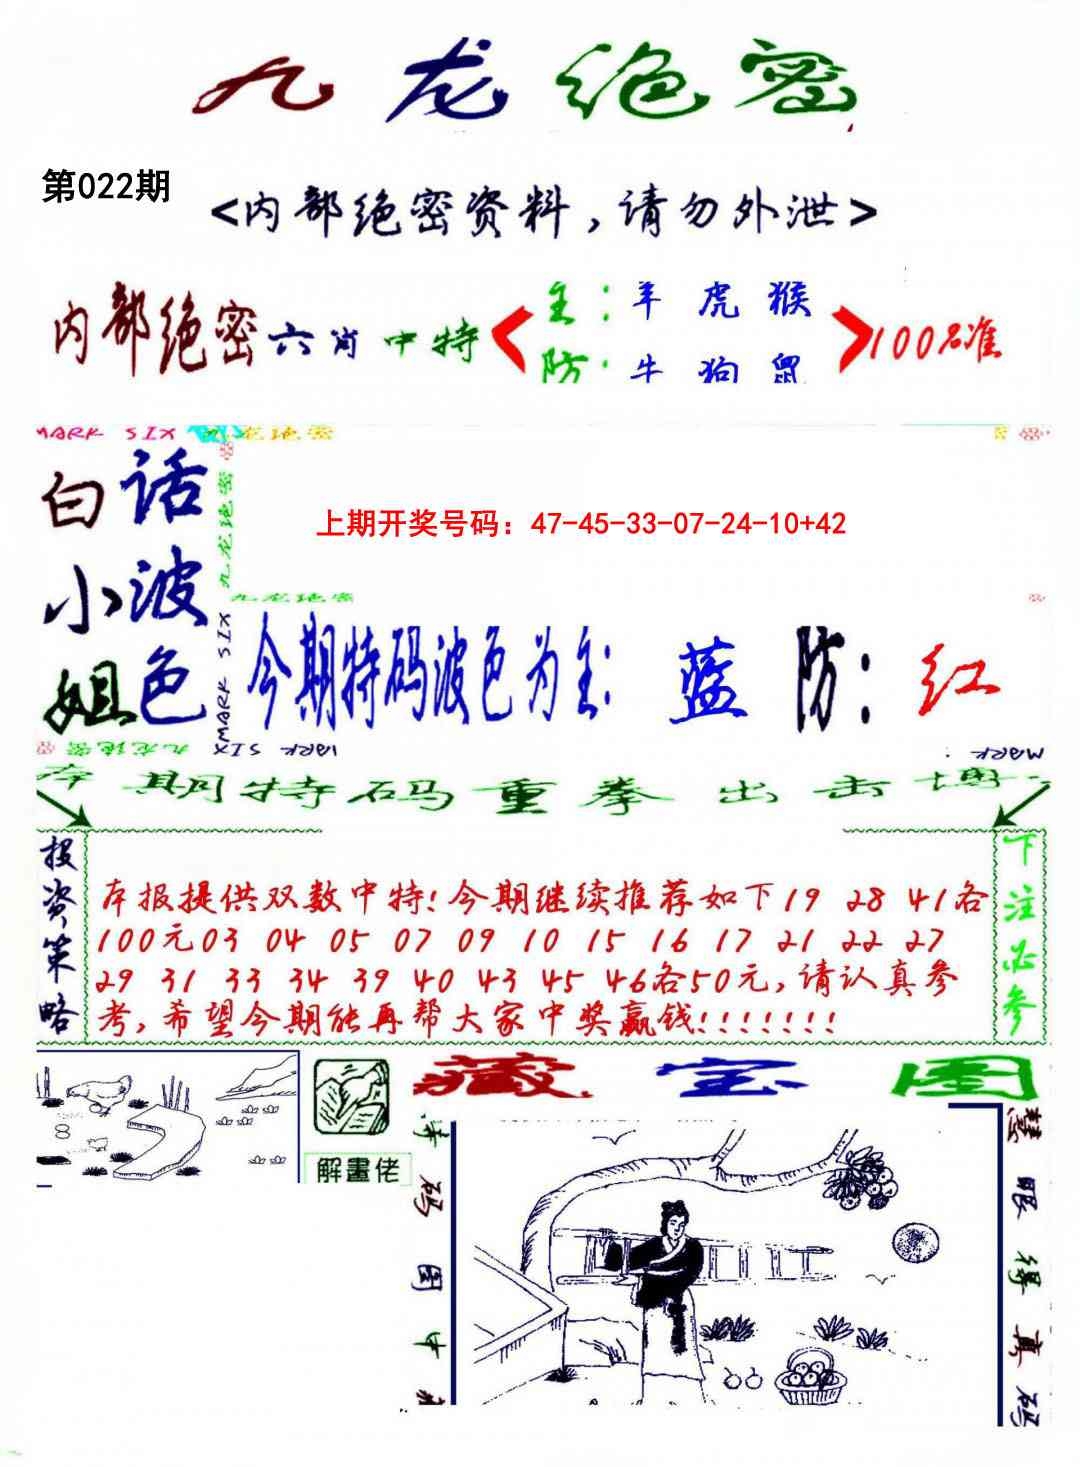 九龙绝密
第022期
<内部绝密资料,请勿外泄>
内部绝密六肖中特
主:羊 虎 猴
防:牛 狗 鼠
100%准
MARK SIX 九龙绝密
白话
小波
姐色
九龙绝密
MARK SIX
上期开奖号码：47-45-33-07-24-10+42
九龙绝密
今期特码波色为主: 蓝 防: 红
九龙绝密
MARK SIX
MARK
本期特码重拳出击博
投资策略
本报提供双数中特!今期继续推荐如下19 28 41各
100元03 04 05 07 09 10 15 16 17 21 22 27
29 31 33 34 39 40 43 45 46各50元,请认真参
考,希望今期能再帮大家中奖赢钱!!!!!!!
下注必参
解畫佬
藏宝图
寺码图中
慧眼得真码